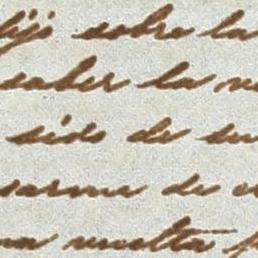 dijo sobre la
saber la
sido de su
sarme de
vuelta